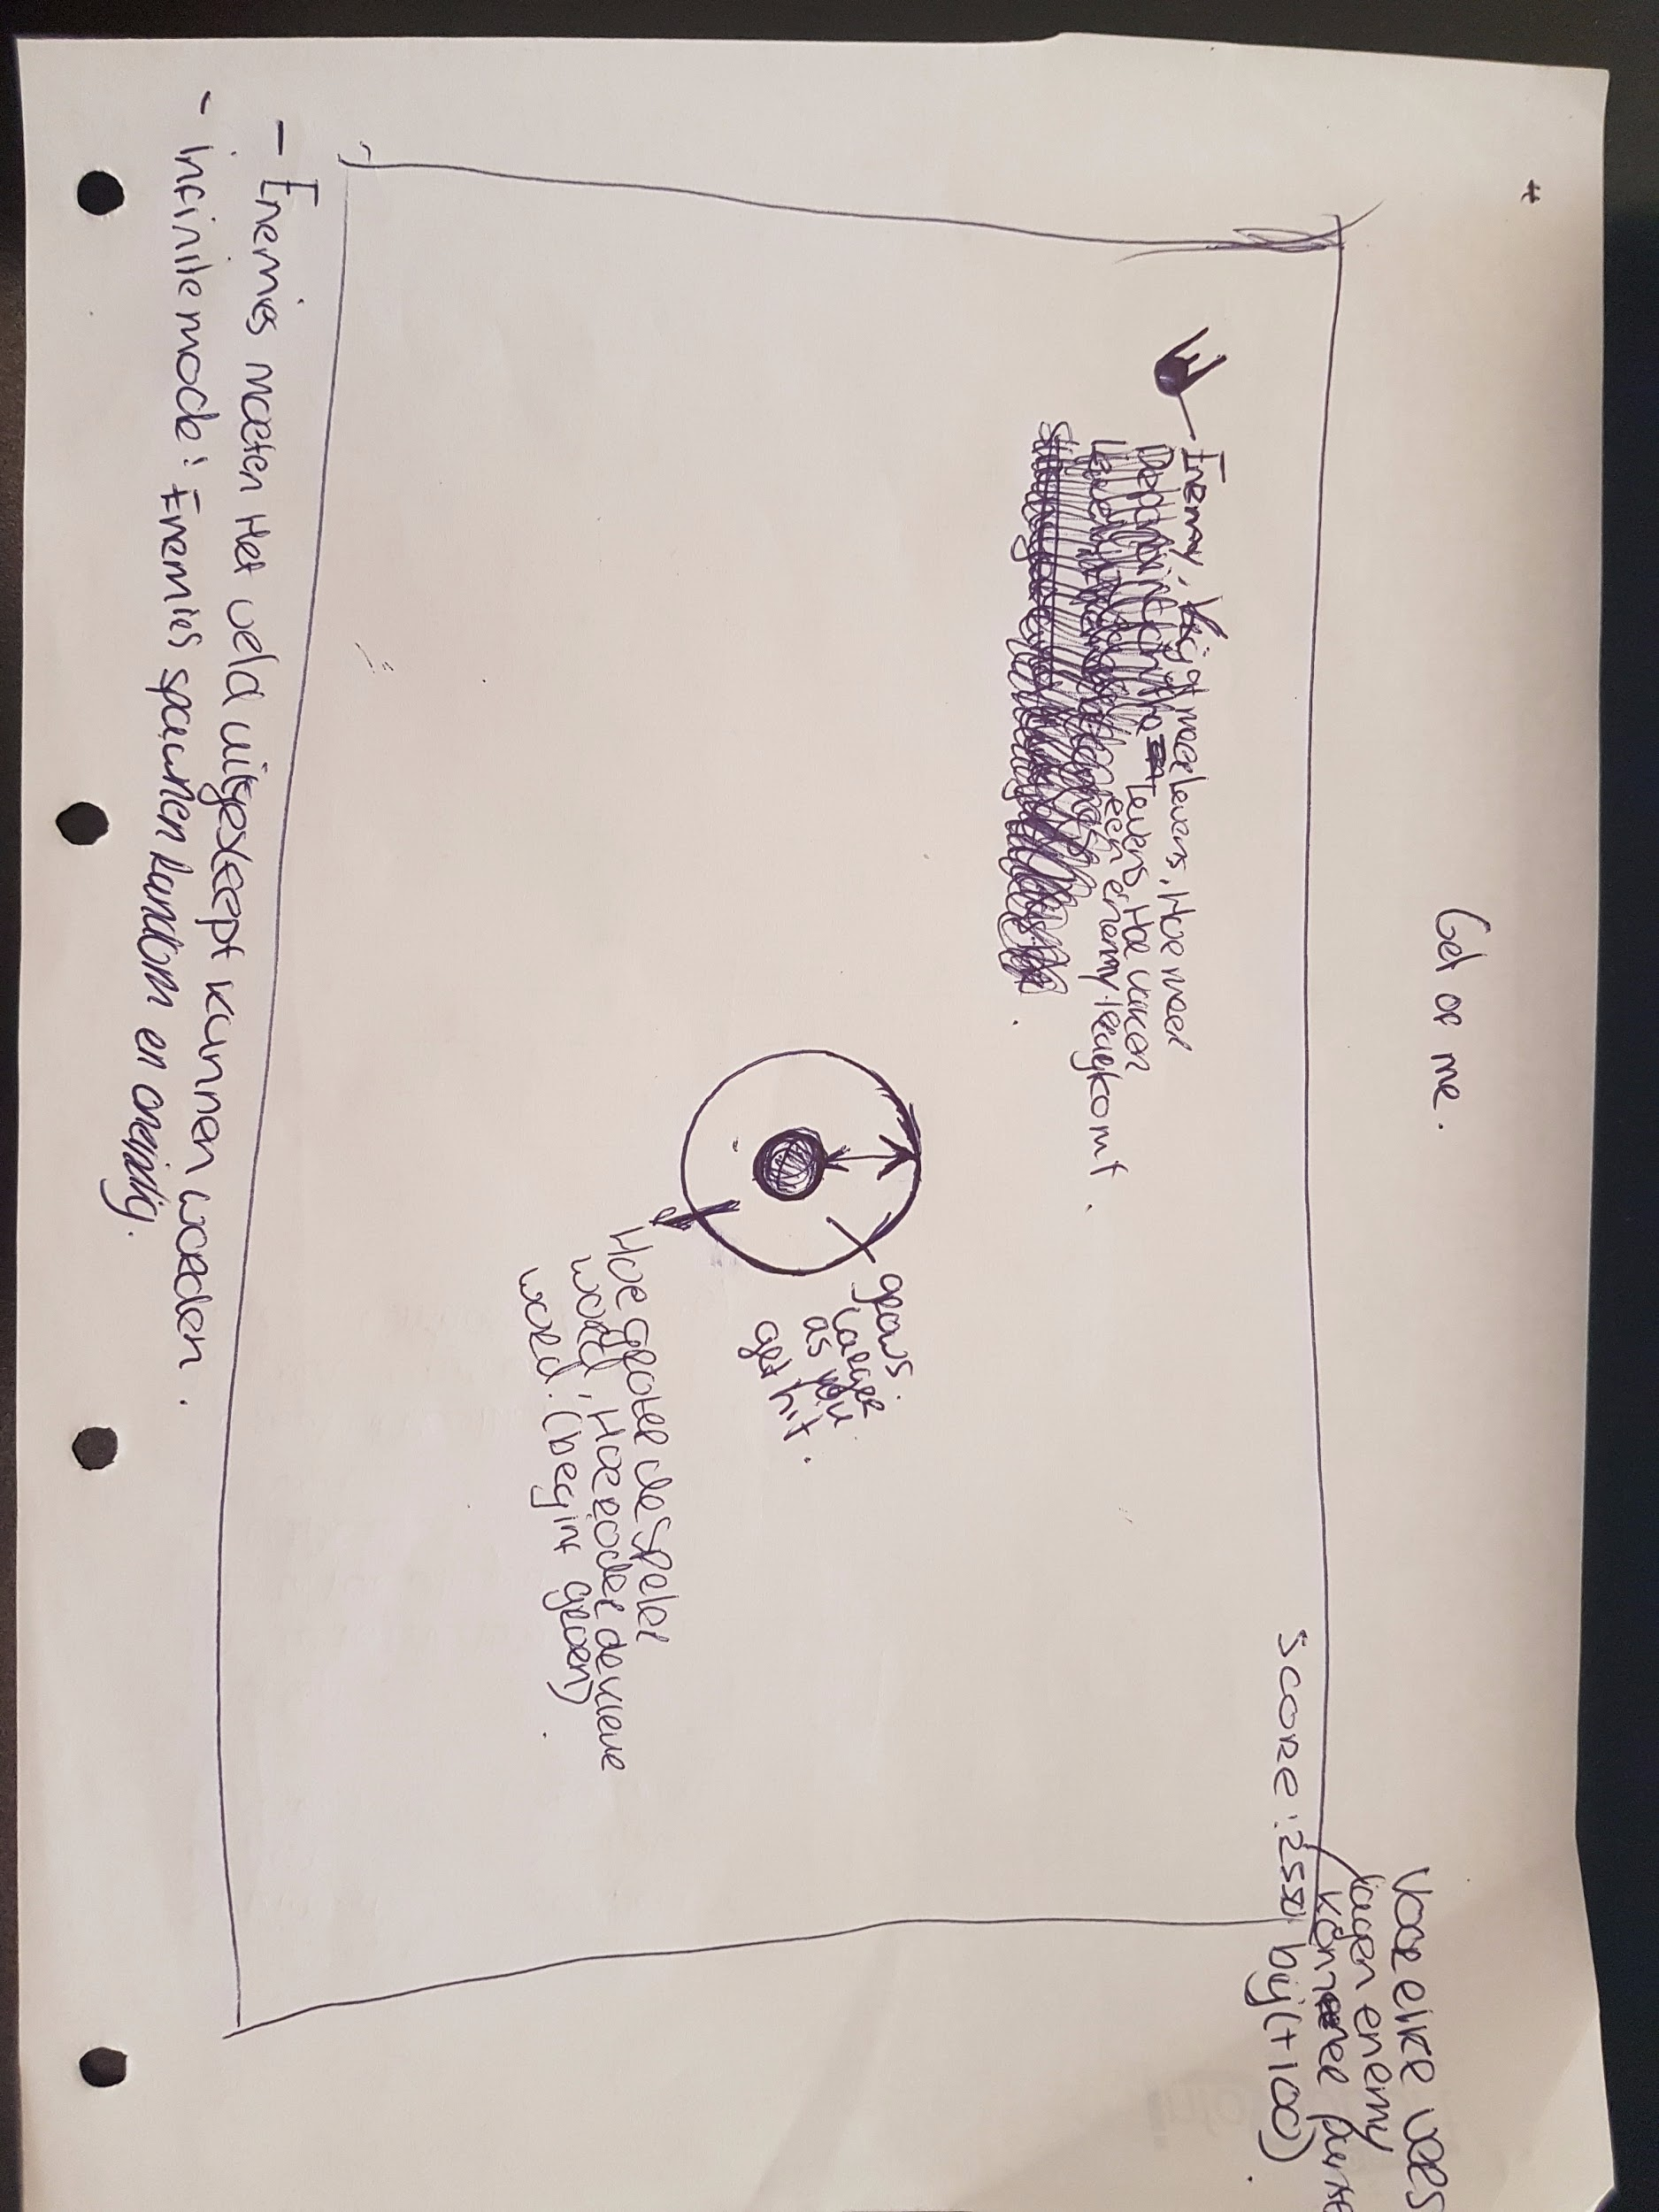 Get of me.
Voor elke vers
lagen enemy
komen er punten
bij (+100)
Score: 2550
Enemy, Krijgt meer levers, Hoe meer
levers, Hoe vaker
een enemy terugkomt.
grows
larger
as you
get hit.
Hoe groter de speler
word, Hoe roder de kleur
word. (begint groen)
- Enemies moeten Het veld uitgesleept kunnen worden.
- infinite mode: Enemies spawnen Random en oneindig.